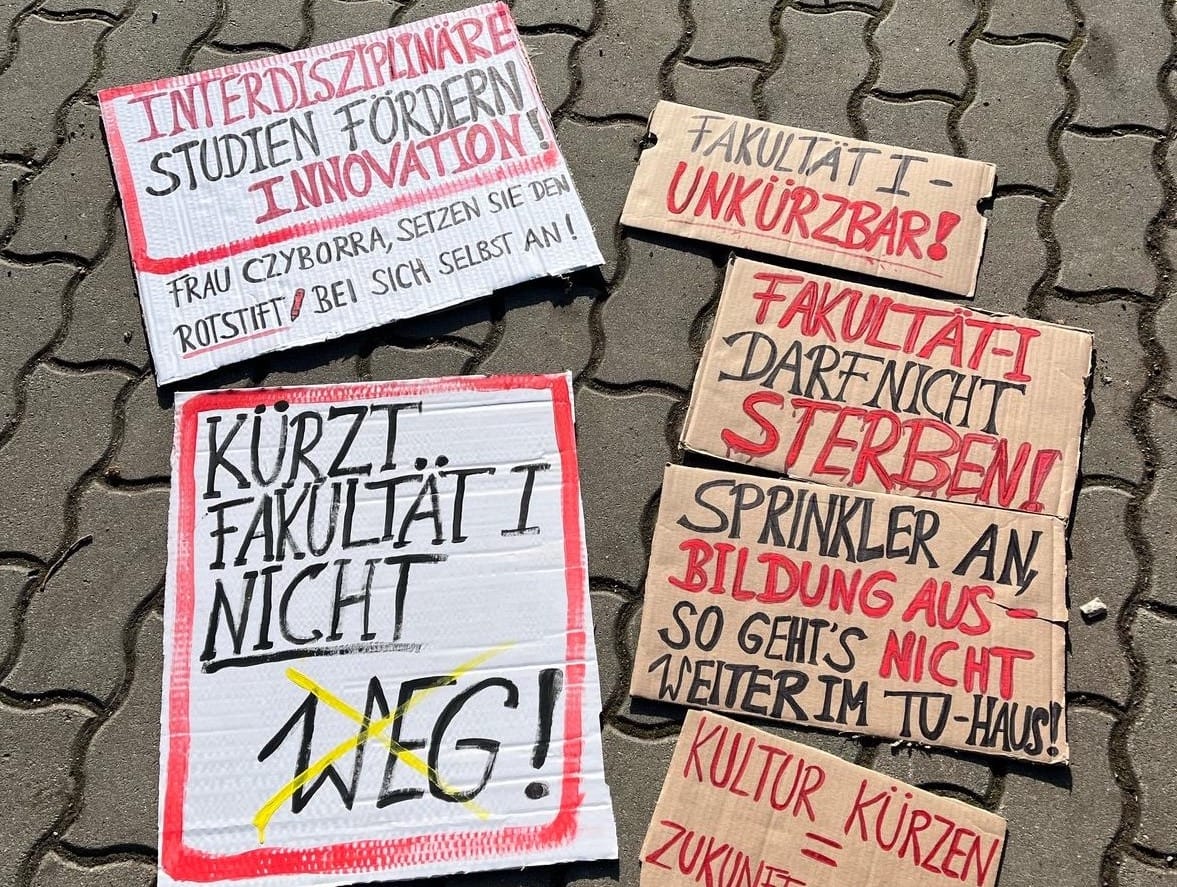 INTERDISZIPLINÄRE
STUDIEN FÖRDERN
INNOVATION!
FRAU CZYBORRA, SETZEN SIE DEN
ROTSTIFT BEI SICH SELBST AN!
KÜRZT
FAKULTÄT I
NICHT
WEG!
FAKULTÄT I -
UNKÜRZBAR!
FAKULTÄT-I
DARF NICHT
STERBEN!
SPRINKLER AN,
BILDUNG AUS -
SO GEHT'S NICHT
WEITER IM TU-HAUS!
KULTUR KÜRZEN
=